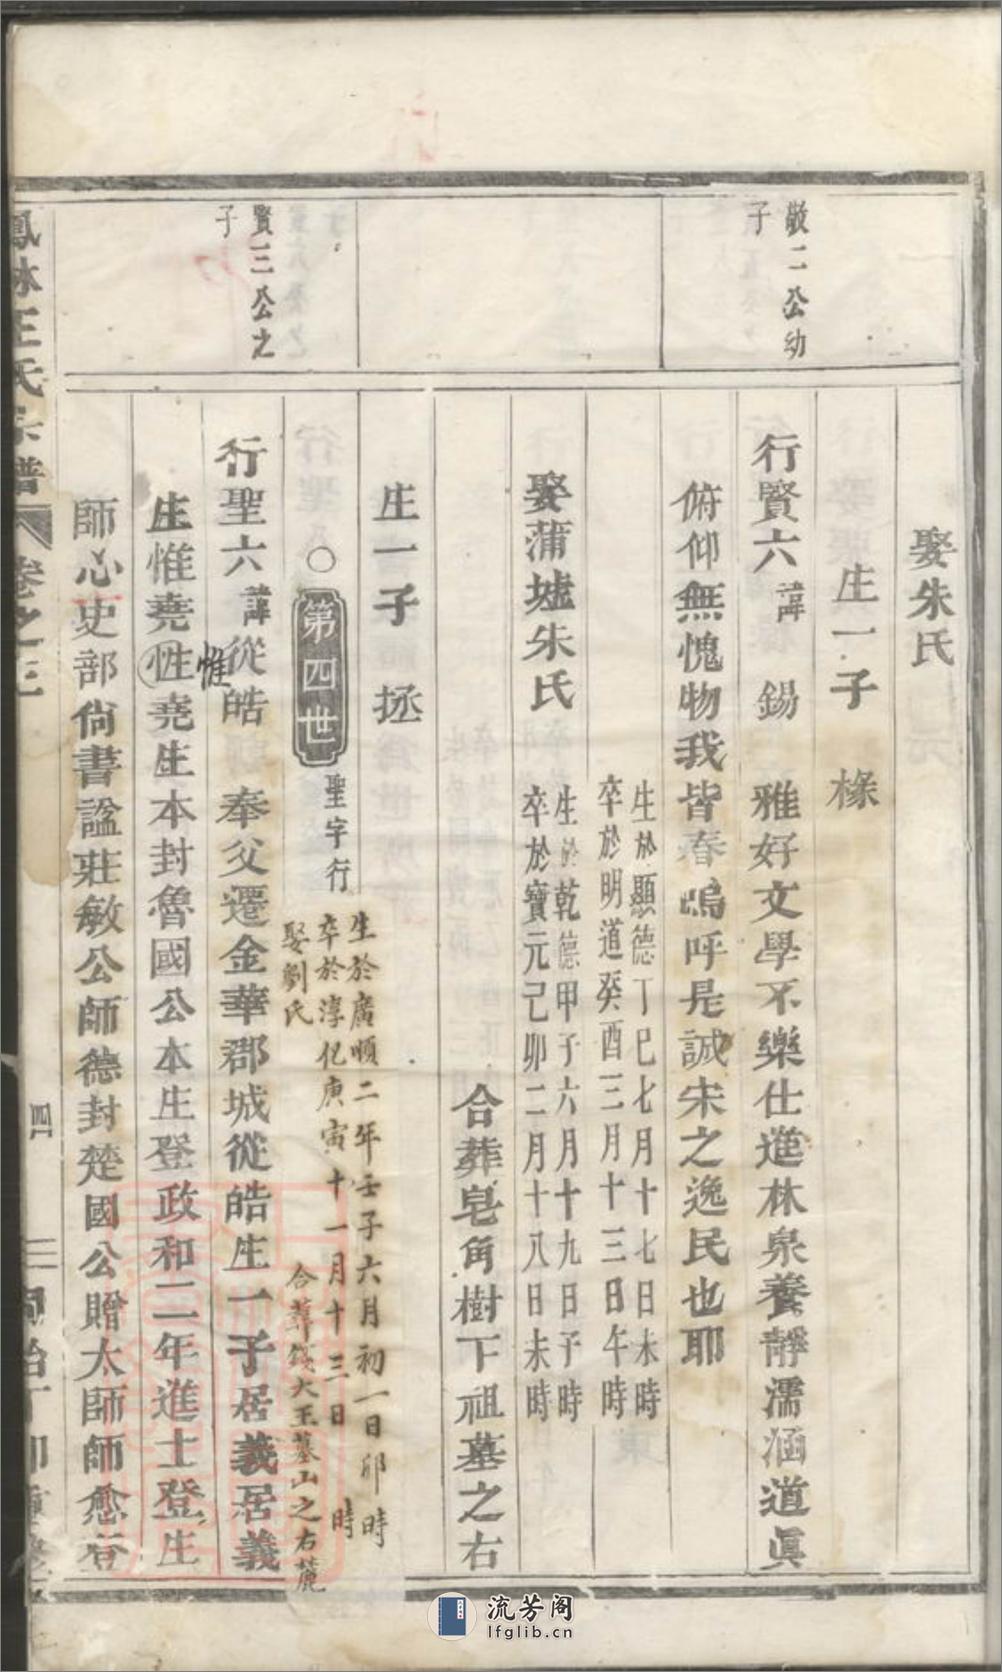 敬二公幼
子
賢三公之
子
娶朱氏
生一子　椽
行賢六諱　錫　雅好文學不樂仕進林泉養靜濡涵道眞
俯仰無愧物我皆春嗚呼是誠宋之逸民也耶
生於顯德丁巳七月十七日未時
卒於明道癸酉三月十三日午時
娶蒲墟朱氏
生於乾德甲子六月十九日子時
卒於寶元己卯二月十八日未時
合葬皂角樹下祖墓之右
生一子　拯
生於廣順二年壬子六月初一日卯時
〇第四世
聖字行
卒於淳化庚寅十一月十三日　時
娶劉氏
合葬錢大王墓山之右麓
行聖六諱從皓　奉父遷金華郡城從皓生一子居義居義
惟
生惟堯性堯生本封魯國公本生登政和二年進士登生
師心史部尙書諡莊敏公師德封楚國公贈太師師愈谷
鳳林王氏宗譜　卷之三
四
同治丁卯重修
流芳阁
lfglib.cn